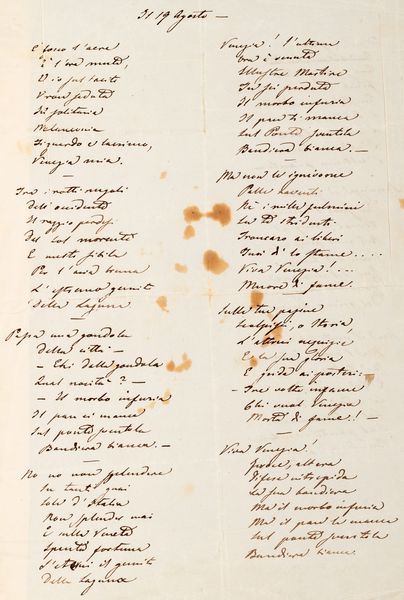 Il 19 Agosto —
E fosco l'aere
È l'ora muta,
Ed io sul tacito
Veron seduto
In solitaria
Melanconia
Ti guardo e lacrimo,
Venezia mia. —
Tra i rotti nugoli
Dell'occidente
Il raggio perdesi
Del sol morente
E mesto sibila
Per l'aria bruna
L'estremo gemito
Della laguna
Passa una gondola
Della città —
— Ehi della gondola
Qual novità? —
— Il morbo infuria
Il pan ci manca
Sul ponte sventola
Bandiera bianca. —
No no non splendere
Su tanti guai
Sole d'Italia
Non splender mai
E sulla Veneta
Spenta fortuna
S'eterni il gemito
Della laguna
Venezia! l'ultima
Ora è venuta
Illustre Martire
Tu sei perduta
Il morbo infuria
Il pan ti manca
Sul Ponte sventola
Bandiera bianca. —
Ma non le ignivome
Palle roventi
Nè i mille fulmini
Su te stridenti
Troncaro ai liberi
Tuoi dì lo stame....
Viva Venezia!....
Muore di fame.
Sulle tue pagine
Scolpisci, o Storia,
L'altrui nequizie
E la sua gloria
E grida ai posteri: —
— Tre volte infame
Chi vuol Venezia
Morta di fame! —
Viva Venezia!
Feroce, altera
Difese intrepida
La sua bandiera
Ma il morbo infuria
Ma il pan le manca
Sul ponte sventola
Bandiera bianca.